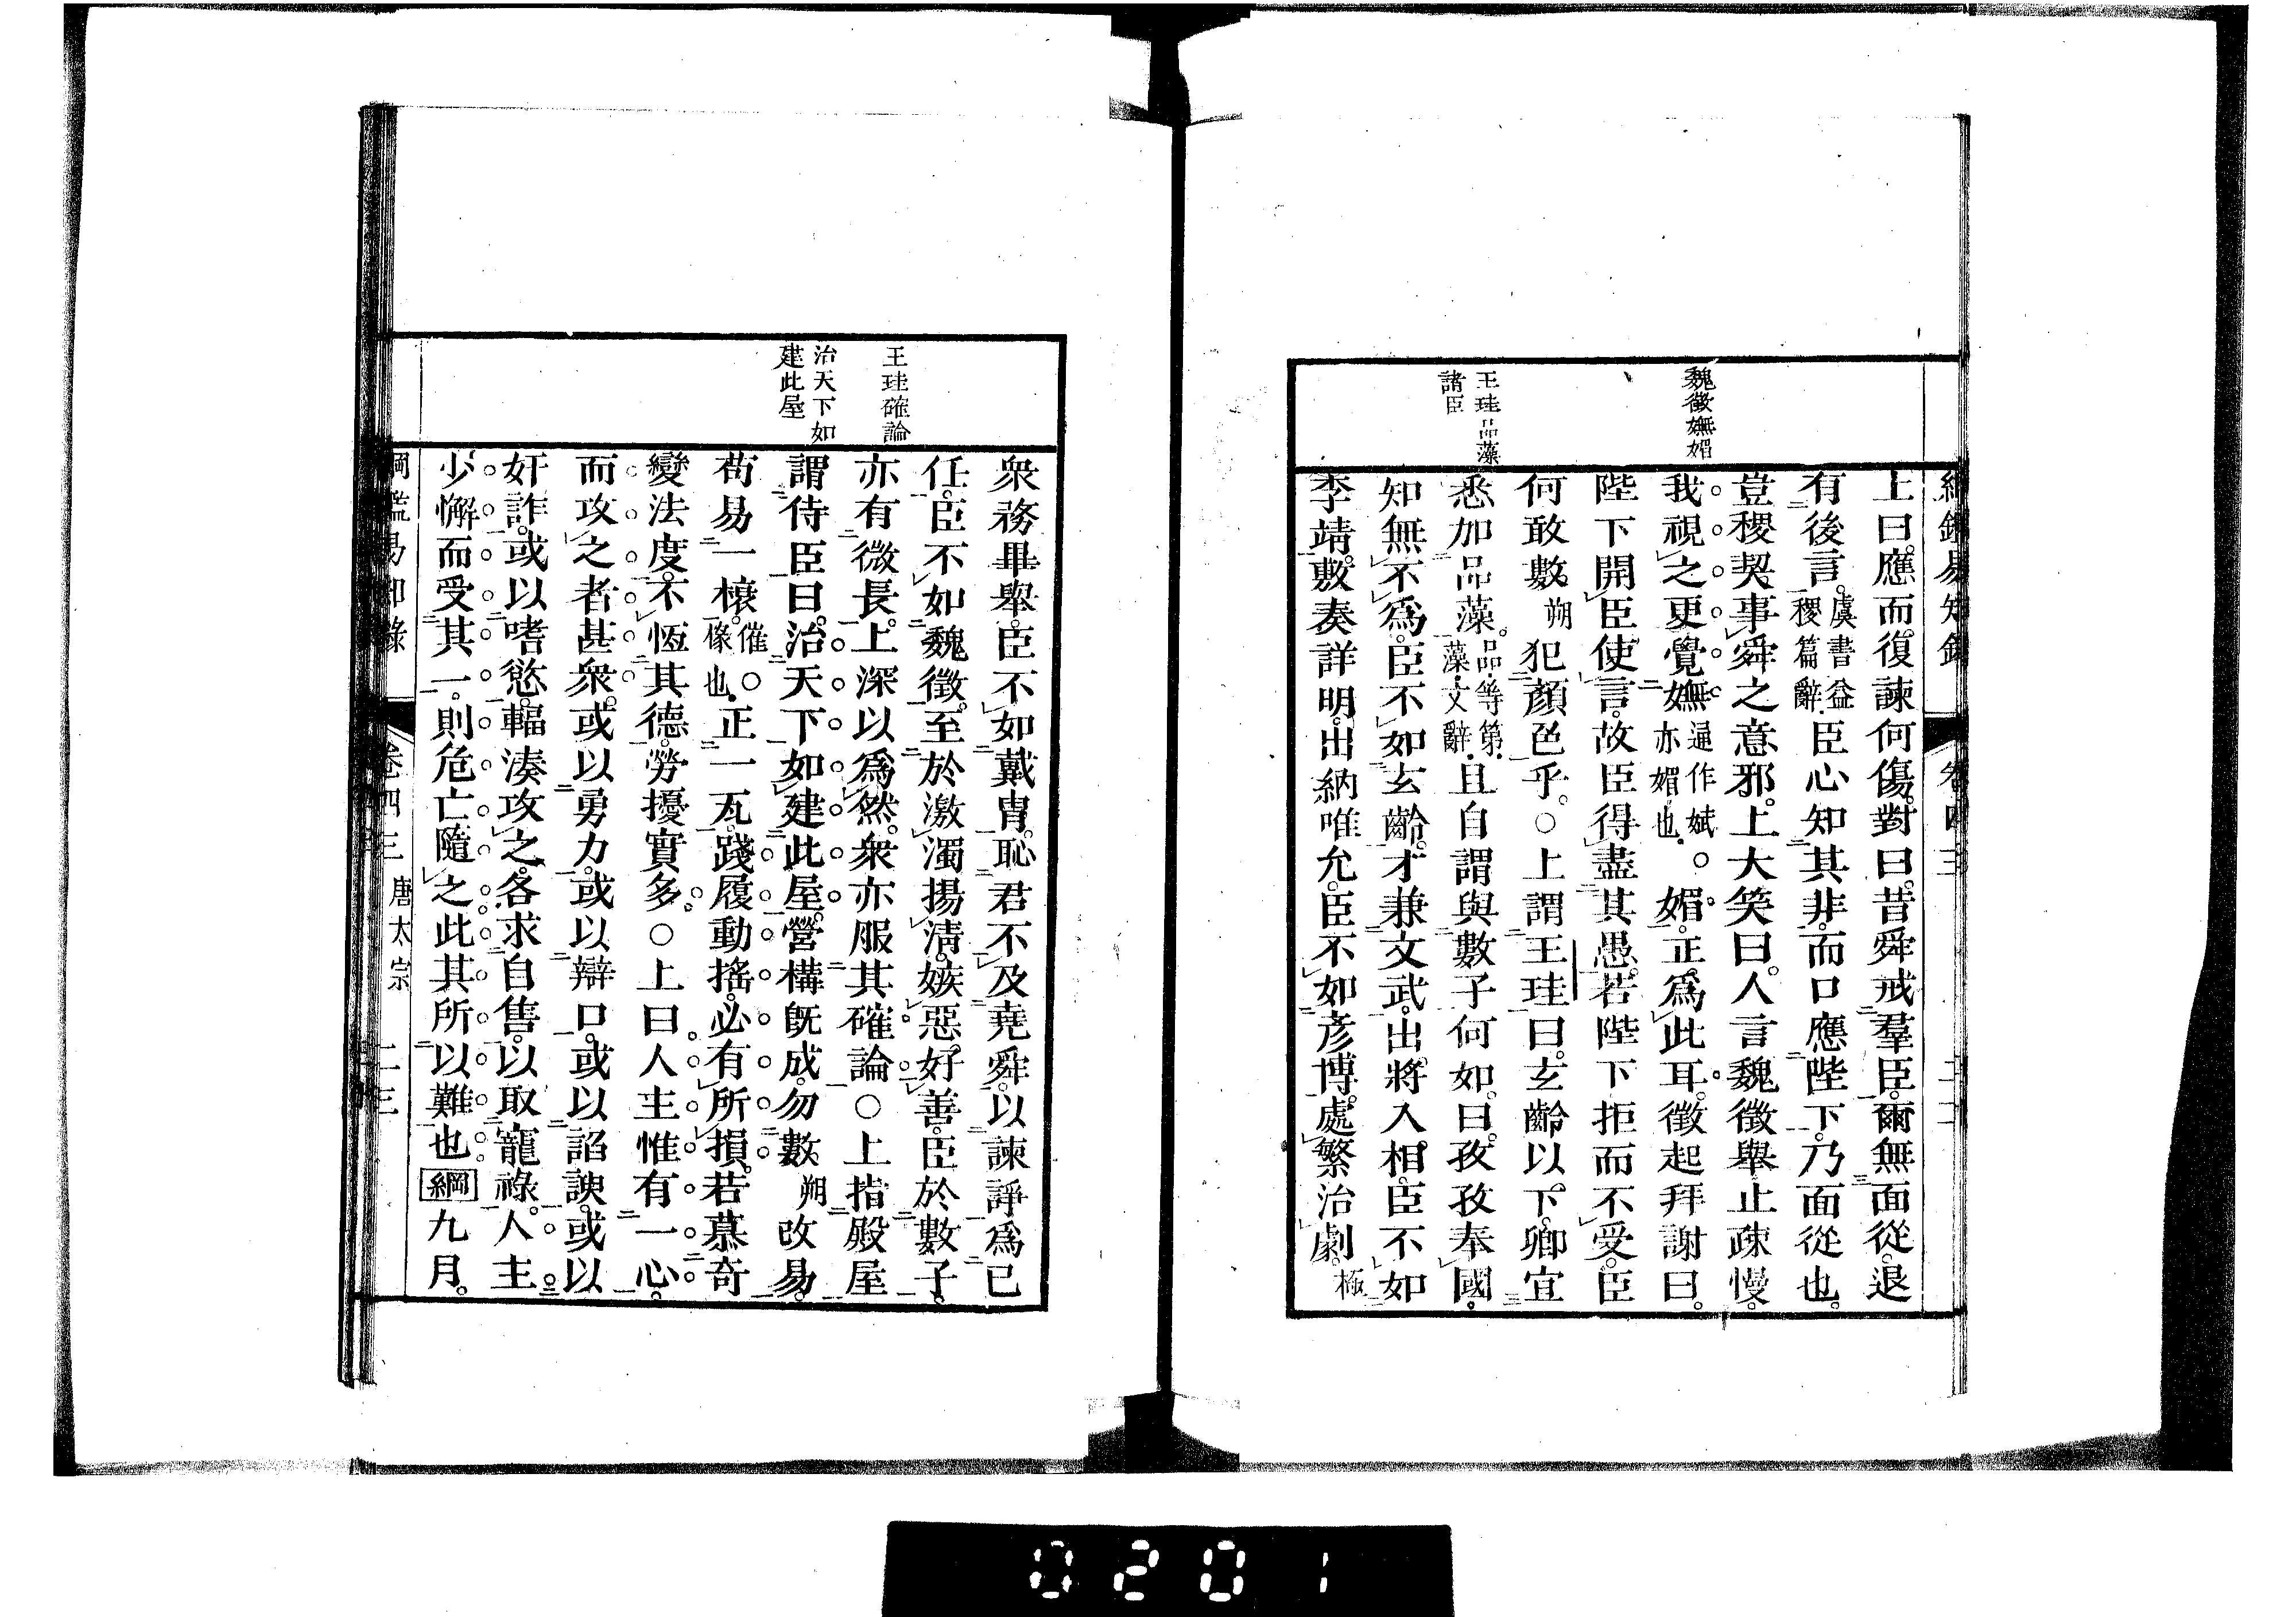 綱鑑易知錄 卷四三 二二
魏徵嫵媚
王珪品藻
諸臣
上曰。應而復諫何傷。對曰。昔舜戒羣臣。爾無面從。退
有後言。虞書益稷篇辭。臣心知其非。而口應陛下。乃面從也。
豈稷契事舜之意邪。上大笑曰。人言魏徵舉止疎慢。
我視之更覺嫵逼作斌亦媚也。○媚。正爲此耳。徵起拜謝曰。
陛下開臣使言。故臣得盡其愚。若陛下拒而不受。臣
何敢數數朔犯顏色乎。○上謂王珪曰。玄齡以下。卿宜
悉加品藻。品。等第。藻。文辭。且自謂與數子何如。曰。孜孜奉國。
知無不爲。臣不如玄齡。才兼文武。出將入相。臣不如
李靖。敷奏詳明。出納唯允。臣不如彥博。處繁治劇。極
王珪確論
治天下如
建此屋
衆務畢舉。臣不如戴冑。恥君不及堯舜。以諫諍爲已
任。臣不如魏徵。至於激濁揚淸。嫉惡。好善。臣於數子。
亦有微長。上深以爲然。衆亦服其確論○上指殿屋
謂侍臣曰。治天下如建此屋。營構旣成。勿數朔改易。
苟易一榱。催○椽也。正一瓦。踐履動搖。必有所損。若慕奇
變法度。不恆其德。勞擾實多。○上曰。人主惟有一心。
而攻之者甚衆。或以勇力。或以辯口。或以諂諛。或以
奸詐。或以嗜慾。輻湊攻之。各求自售。以取寵祿。人主
少懈而受其一。則危亡隨之。此其所以難也。綱九月。
綱鑑易知錄 卷四三 唐太宗 二三
0201